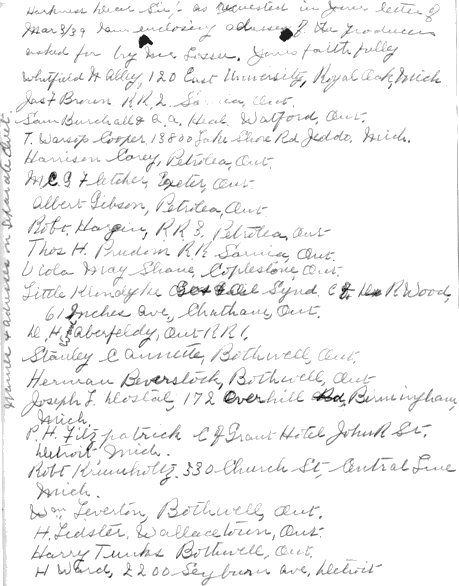 Harkness Dear Sir,- as requested in your letter of
Mar 8/39 I am enclosing addresses of the producers
asked for by Mr. Losser. Yours faithfully
Whitfield H Alley, 120 East University, Royal Oak, Mich
Jas F Brown R.R.2. Sarnia, Ont.
Sam Burchall & A.A. Heal Watford, Ont.
T. Warsop Cooper, 13800 Lake Shore Rd Jeddo, Mich.
Harrison Corey, Petrolea, Ont.
Fletcher, Exeter, Ont
Albert Gibson, Petrolea, Ont
Robt. Hargin, RR 3. Petrolea, Ont
Thos H. Prudom RR Sarnia, Ont.
Viola May Shane, Coplestone Ont.
Little Klondyke Synd. C/o R Wood,
61 Inches Ave, Chatham, Ont.
D. H. Aberfeldy, Ont RR1,
Stanley C Annette, Bothwell, Ont.
Herman Beverstock, Bothwell, Ont
Joseph L Dostal, 172 Overhill Rd, Birmingham,
Mich.
P.H. Fitzpatrick C/o Grant Hotel John R St.
Detroit Mich.
Robt Krumholtz 330 Church St, Central Line
Mich.
Wm Leverton, Bothwell, Ont.
H. Lidster, Wallacetown, Ont.
Harry Tunks Bothwell, Ont.
H Ward, 2200 Seyburn ave, Detroit
Names & adresses on separate Ont.